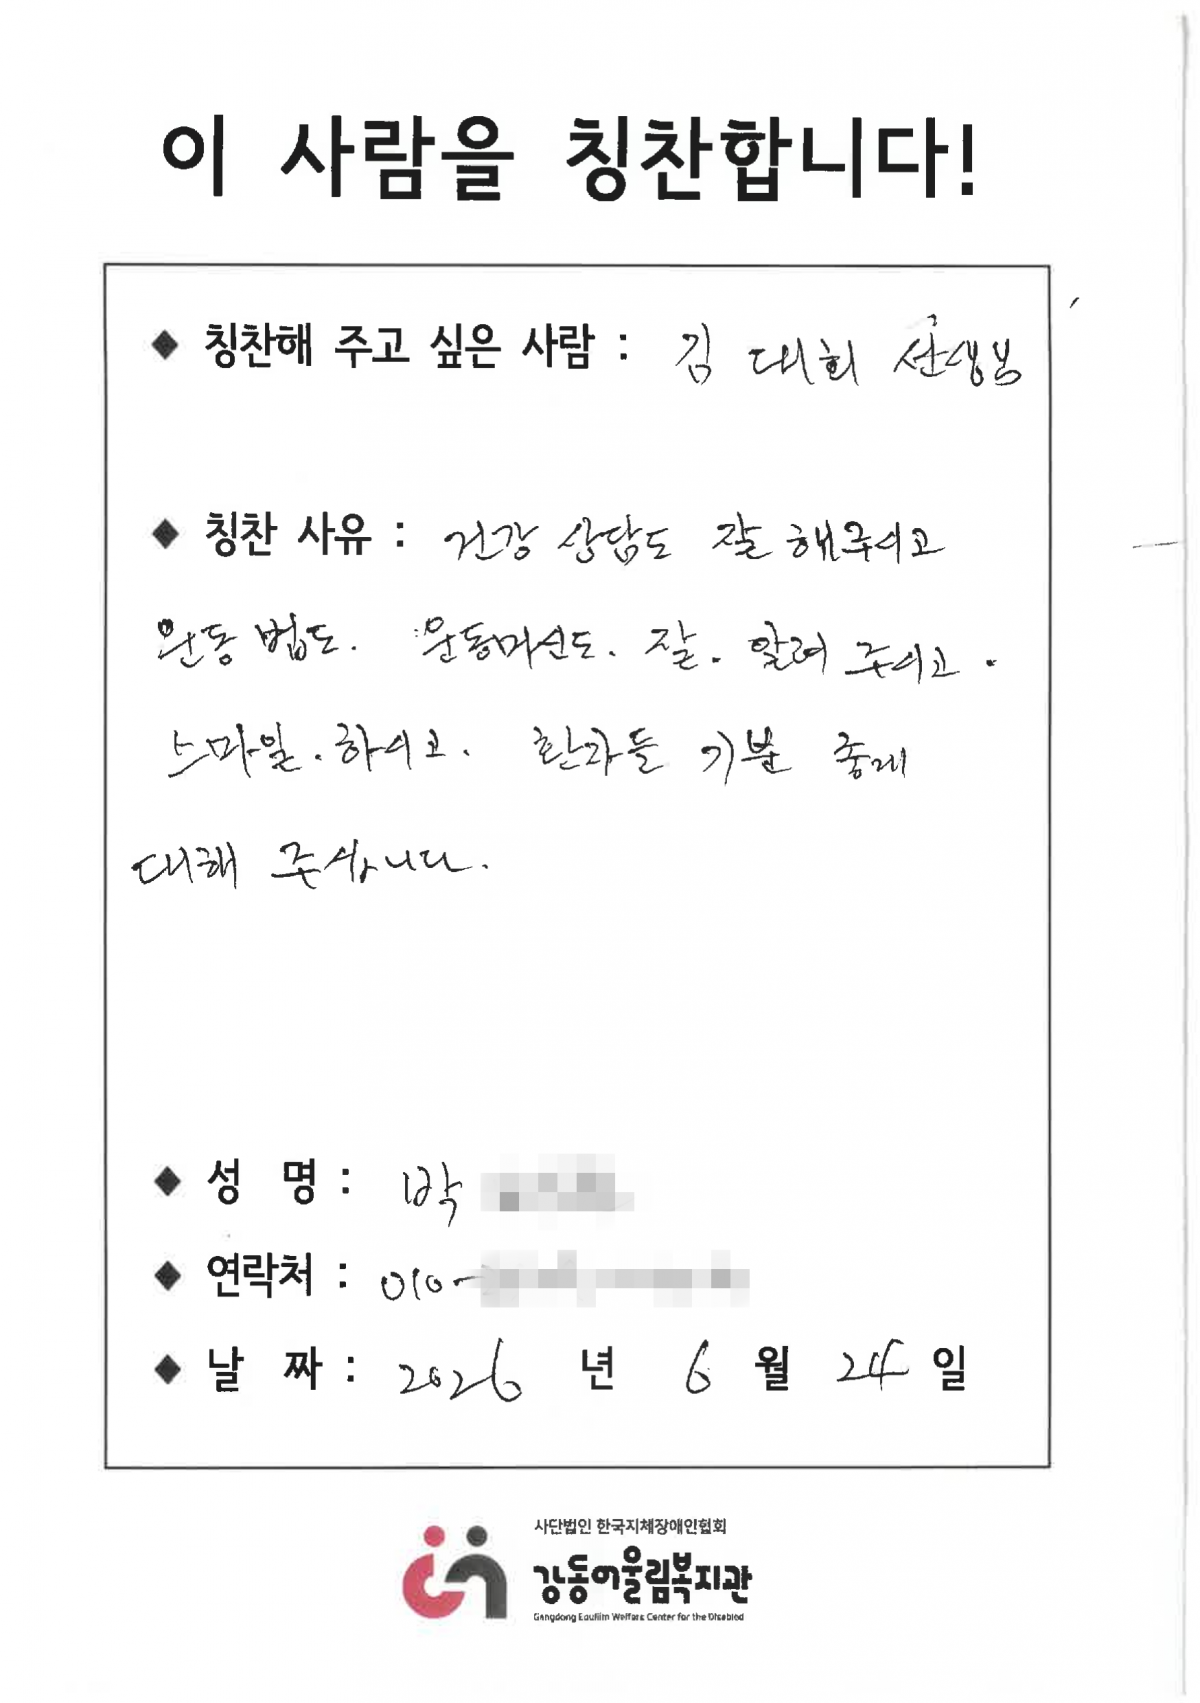 이 사람을 칭찬합니다!
◆ 칭찬해 주고 싶은 사람 : 김 대희 선생님
◆ 칭찬 사유 : 건강 상담도 잘 해주시고
운동 법도. 운동머신도. 잘. 알려 주시고.
스마일. 하시고. 환자들 기분 좋게
대해 주십니다.
◆ 성 명 : 박
◆ 연락처 : 010-
◆ 날 짜 : 2026 년 6 월 24 일
사단법인 한국지체장애인협회
강동어울림복지관
Gangdong Eoullim Welfare Center for the Disabled